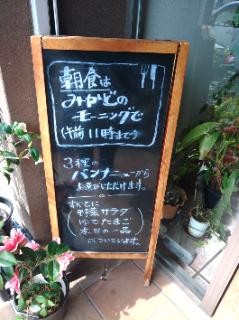 朝食は
みかどの
モーニングで
(午前11時まで)
3種の
パンメニューから
お選びいただけます。
すべてに
野菜サラダ
ゆでたまご
本日の一品
がついています。